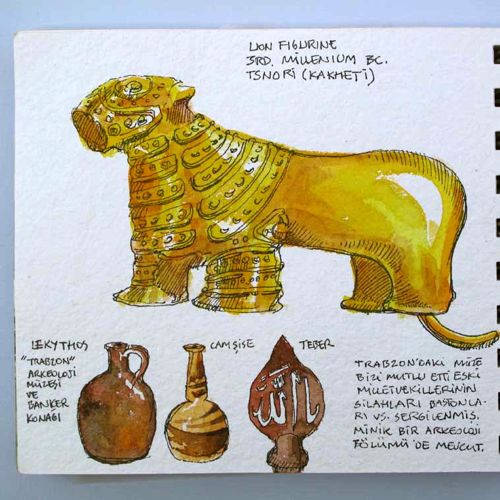 LION FIGURINE
3RD. MILLENIUM BC.
TSNORİ (KAKHETİ)
LEKYTHOS
"TRABZON"
ARKEOLOJİ
MÜZESİ
VE
BANKER
KONAĞI
CAMŞİSE
TEBER
يا الله
TRABZON'DAKİ MÜZE
BİZİ MUTLU ETTİ ESKİ
MİLLETVEKİLLERİNİN
SİLAHLARI BASTONLA-
RI VS. SERGİLENMİŞ.
MİNİK BİR ARKEOLOJİ
BÖLÜMÜ DE MEVCUT.